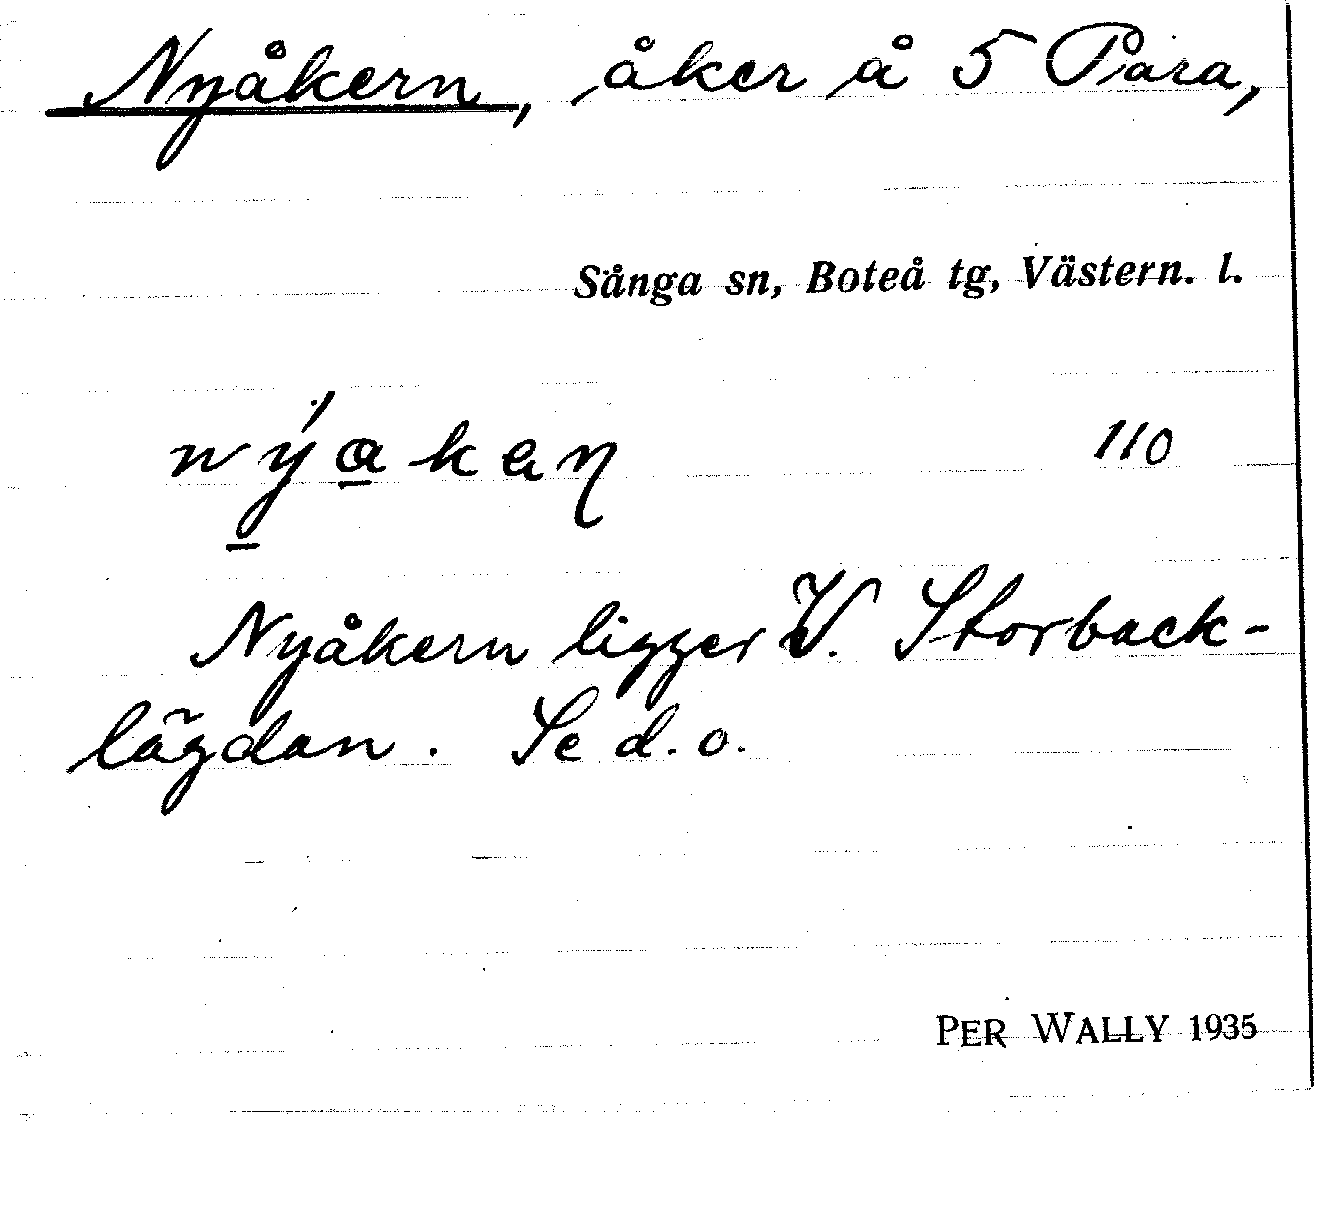 Nyåkern, åker å 5 Para,
Sånga sn, Boteå tg, Västern. l.
nýakaη 110
Nyåkern ligger V. Storback-
lägdan. Se d.o.
PER WALLY 1935